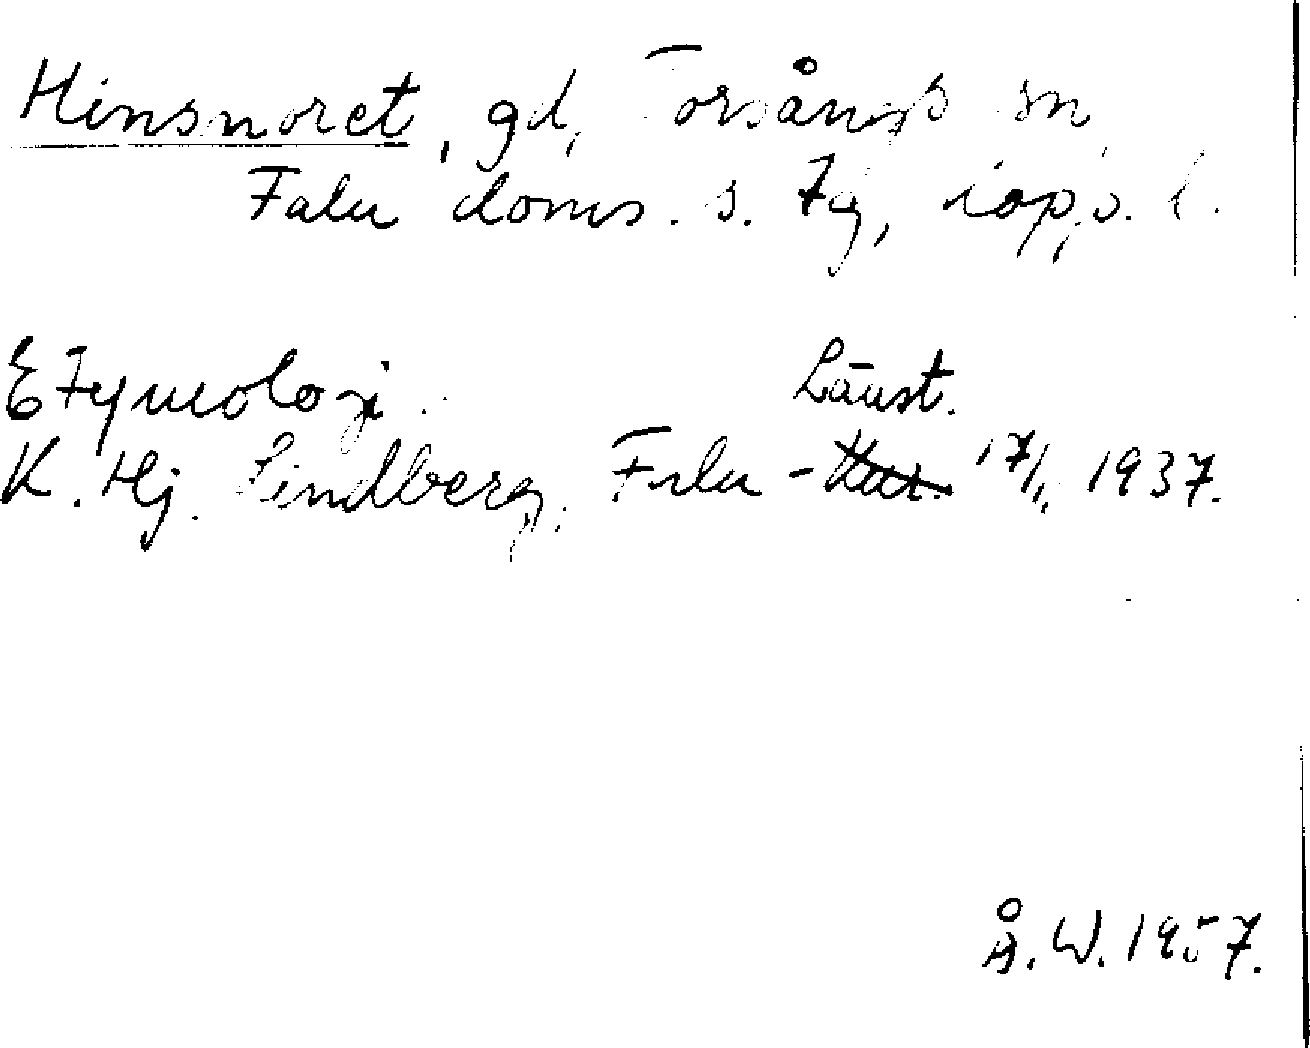 Hinsnoret, gd, Torsångs sn,
Falu doms. s. tg, Kopp. l.
Etymologi. Länst.
K. Hj. Lindberg, Falu - 17/1, 1937.
Å. W. 1957.